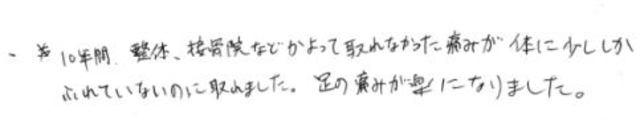 ・約10年間、整体、接骨院などかよって取れなかった痛みが体に少ししか
ふれていないのに取れました。足の痛みが楽になりました。